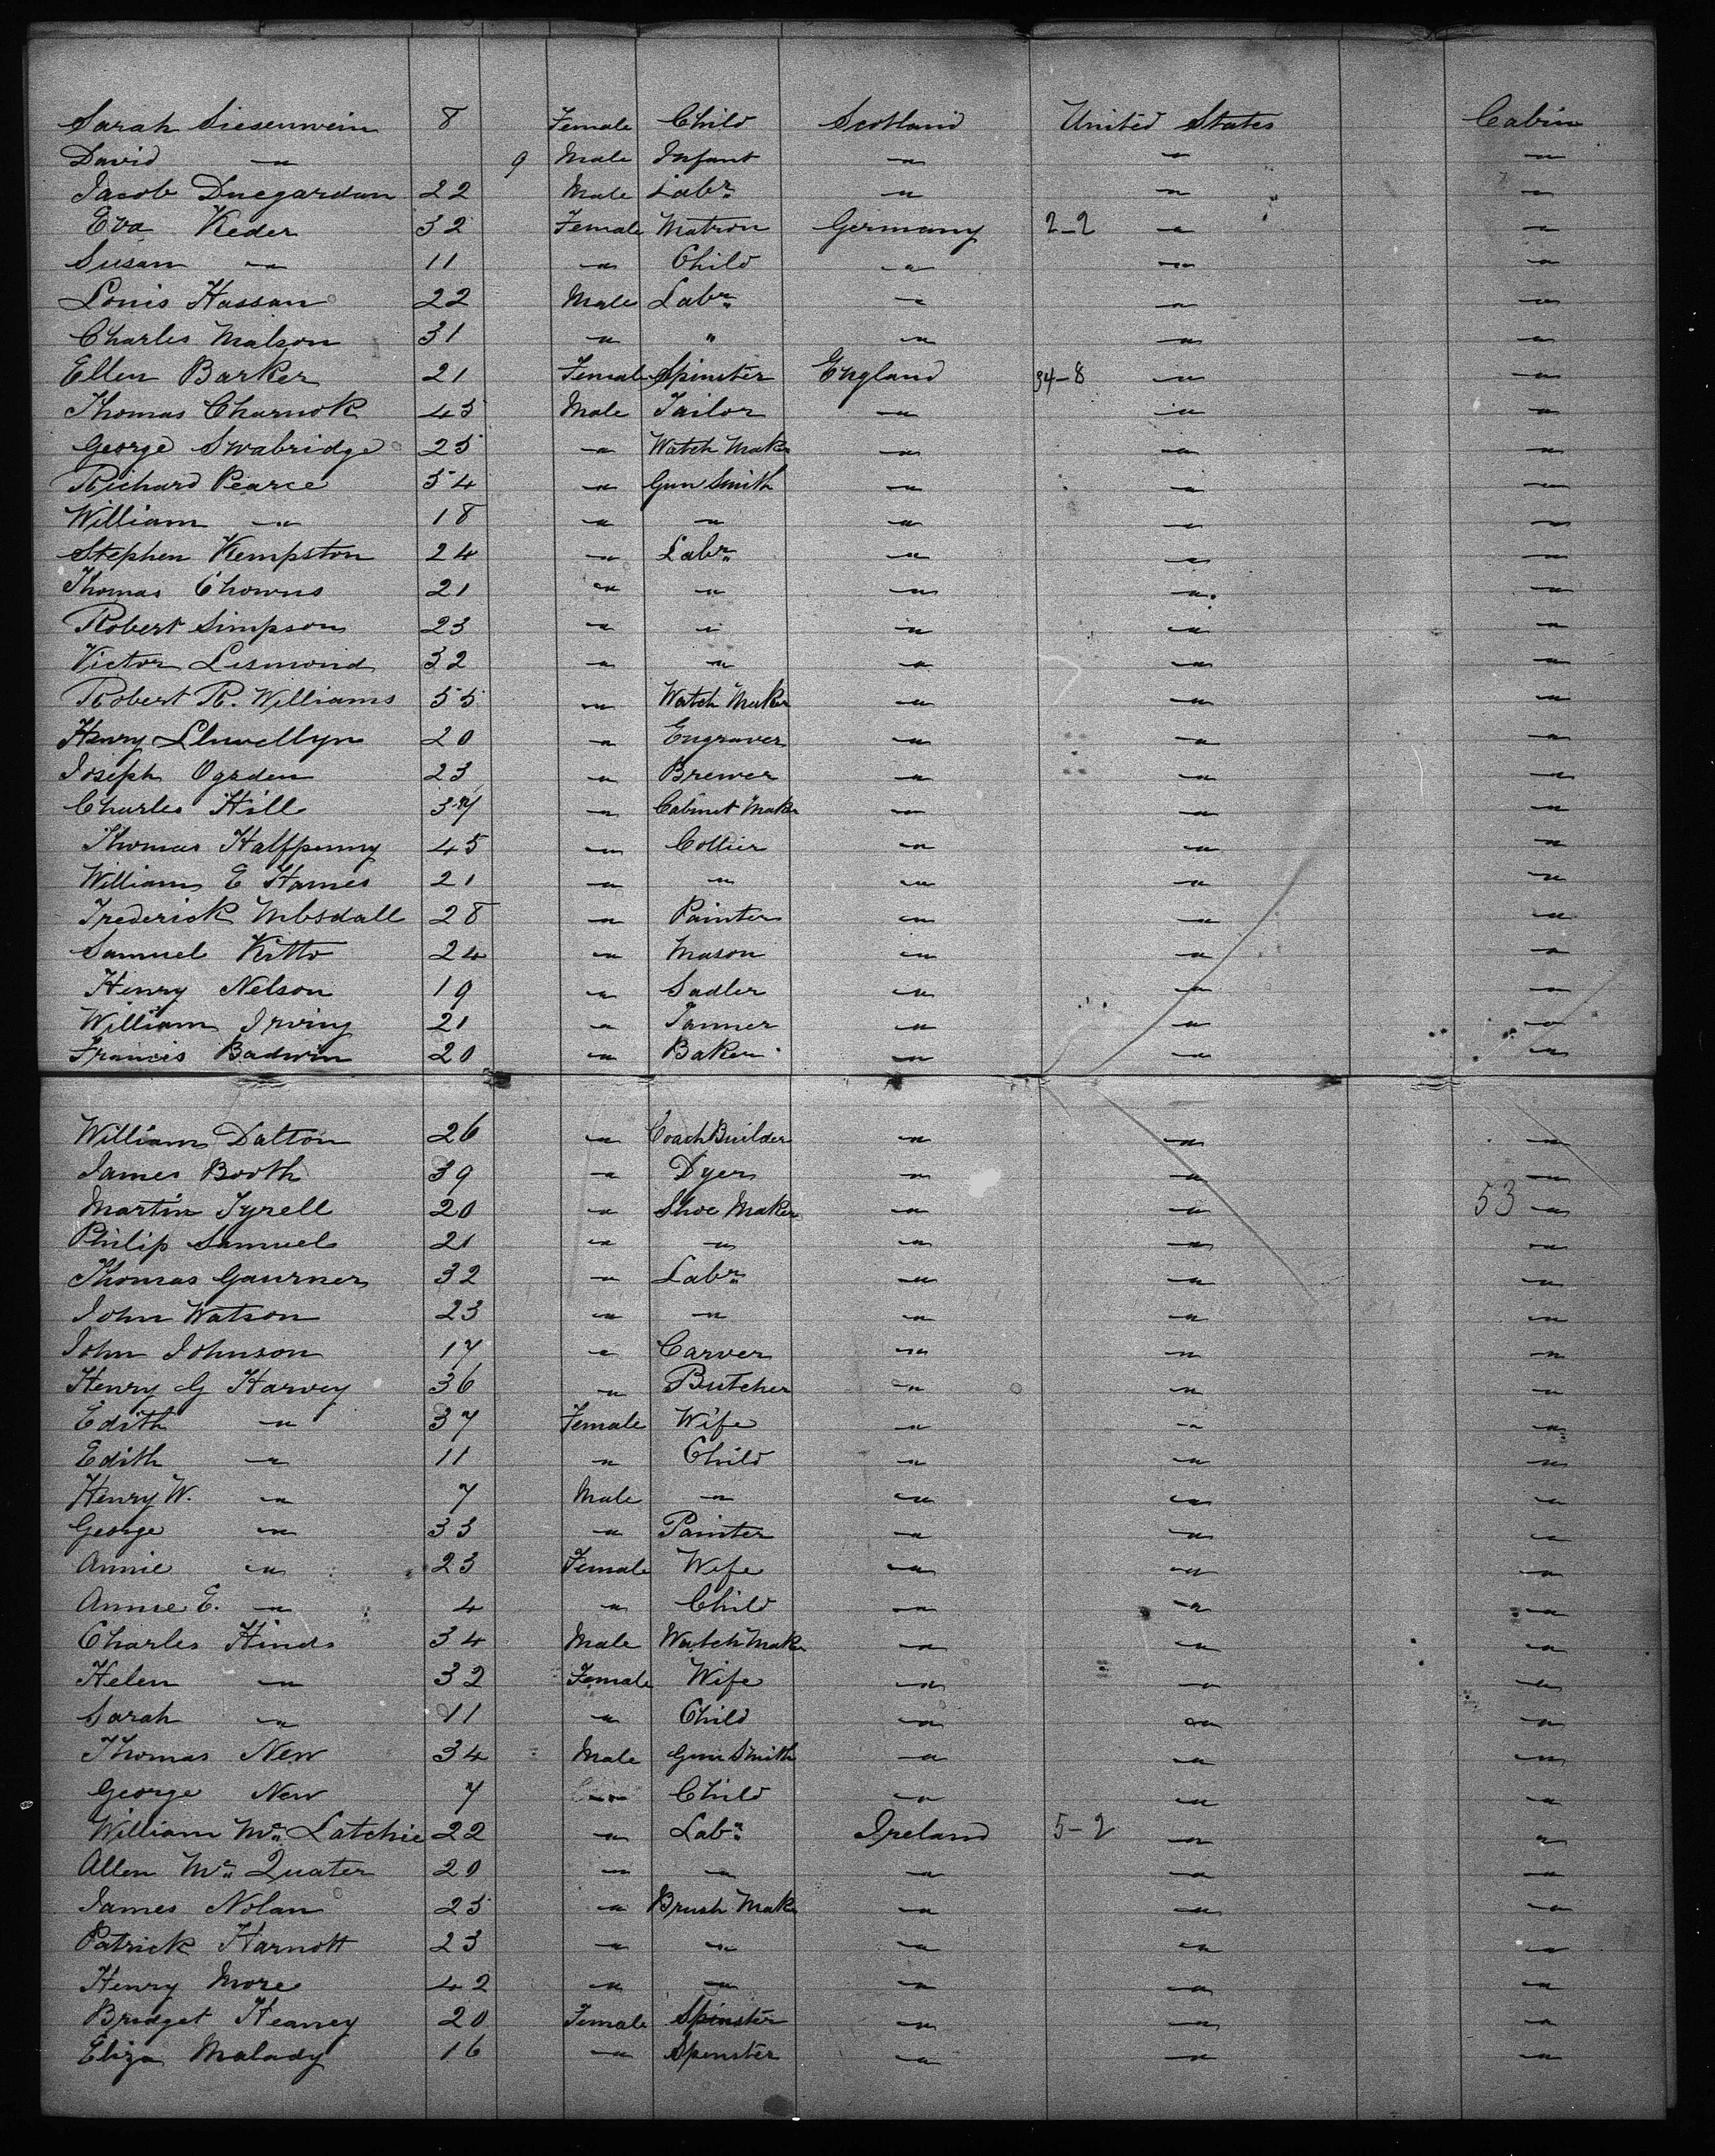 Sarah Siesenwein 8 Female Child Scotland United States Cabin
David " 9 Male Infant " " "
Jacob Duegardan 22 Male Labr " " "
Eva Keder 32 Female Matron Germany 2-2 " "
Susan " 11 " Child " " "
Louis Hassan 22 Male Labr " " "
Charles Malson 31 " " " " "
Ellen Barker 21 Female Spinster England 34-8 " "
Thomas Charnok 45 Male Tailor " " "
George Swabridge 25 " Watch Maker " " "
Richard Pearce 54 " Gun Smith " " "
William " 18 " " " " "
Stephen Kempston 24 " Labr " " "
Thomas Chowns 21 " " " " "
Robert Simpson 23 " " " " "
Victor Lesmond 32 " " " " "
Robert R. Williams 55 " Watch Maker " " "
Henry Llwellyn 20 " Engraver " " "
Joseph Ogden 23 " Brewer " " "
Charles Hill 37 " Cabinet Maker " " "
Thomas Halfpenny 45 " Collier " " "
William E Hames 21 " " " " "
Frederick 28 " Painter " " "
Samuel Kitto 24 " Mason " " "
Henry Nelson 19 " Sadler " " "
William Irving 21 " Tanner " " "
Francis Badwin 20 " Baker " " "
William Dalton 26 " Coach Builder " " "
James Booth 39 " Dyer " " "
Martin Tyrell 20 " Shoe Maker " " 53 "
Philip Samuels 21 " " " " "
Thomas Gaurner 32 " Labr " " "
John Watson 23 " " " " "
John Johnson 17 " Carver " " "
Henry G Harvey 36 " Butcher " " "
Edith " 37 Female Wife " " "
Edith " 11 " Child " " "
Henry W. " 7 Male " " " "
George " 33 " Painter " " "
Annie " 23 Female Wife " " "
Annie E. " 4 " Child " " "
Charles Hinds 34 Male Watch Maker " " "
Helen " 32 Female Wife " " "
Sarah " 11 " Child " " "
Thomas New 34 Male Gun Smith " " "
George New 7 " Child " " "
William Mc Latchie 22 " Labr Ireland 5-2 " "
Allen Mc Quater 20 " " " " "
James Nolan 25 " Brush Maker " " "
Patrick Harnott 23 " " " " "
Henry More 42 " " " " "
Bridget Heaney 20 Female Spinster " " "
Eliza Malady 16 " Spinster " " "